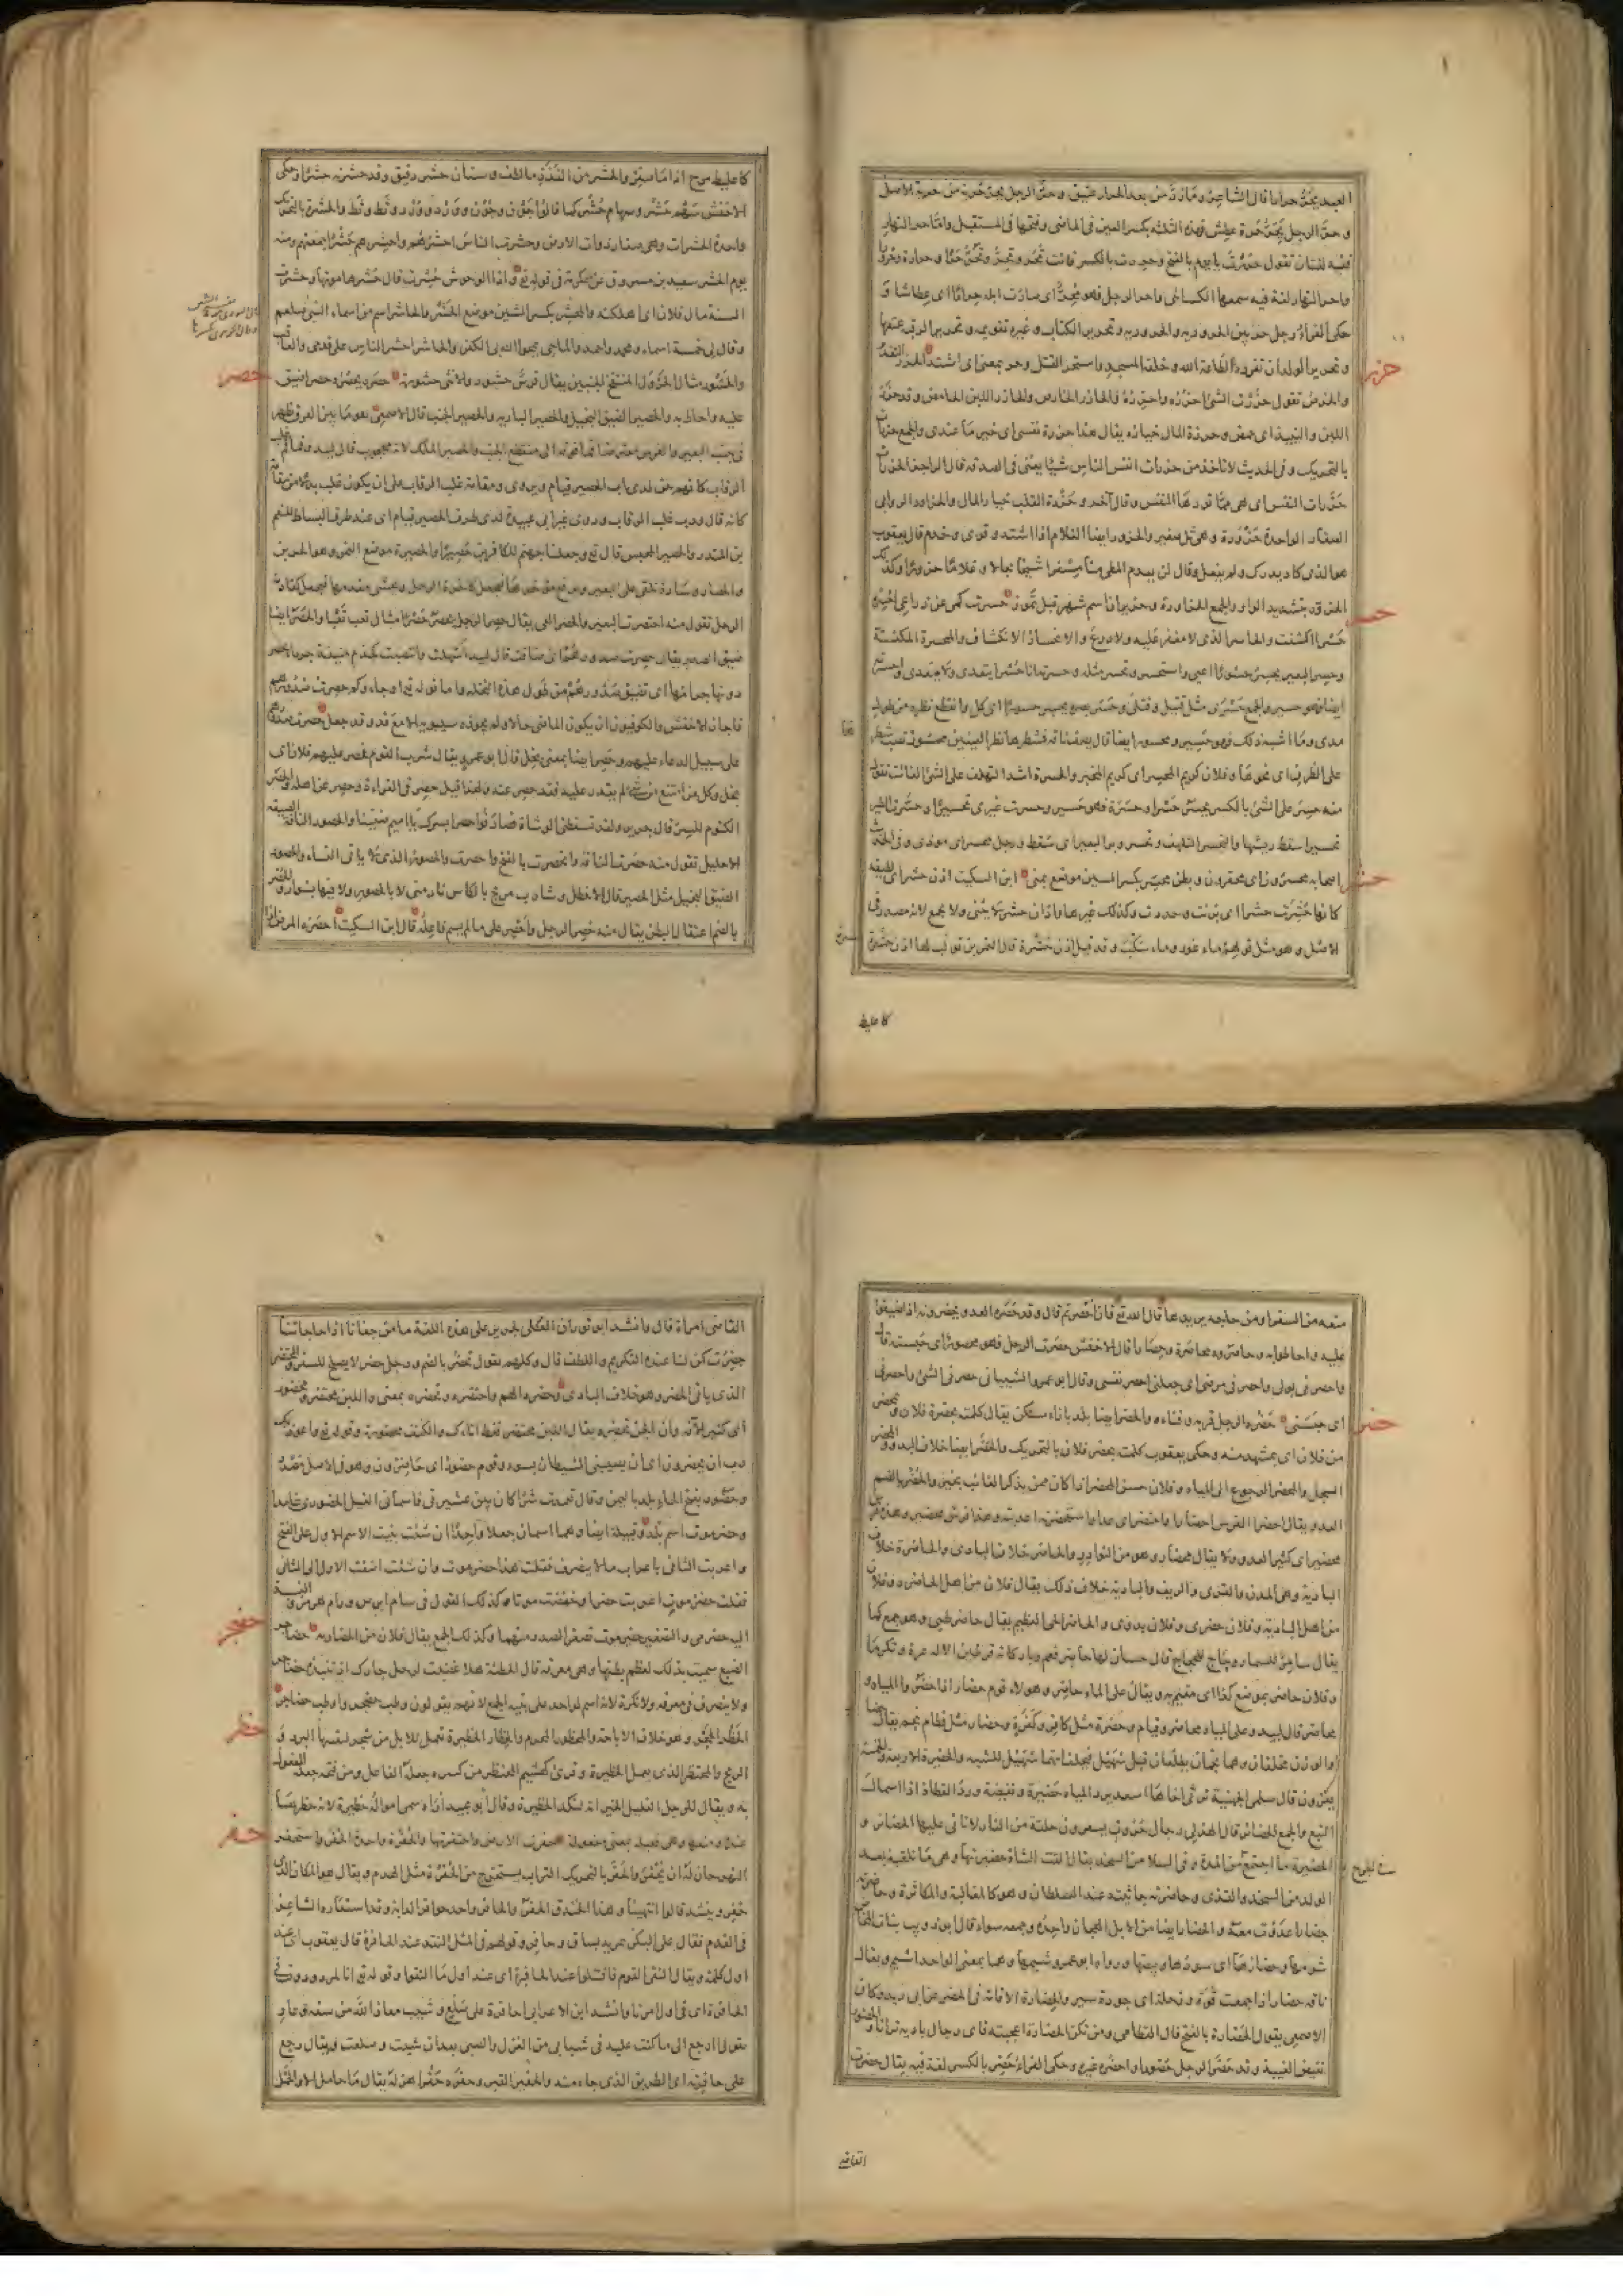 العبد يحر حرارا قال الشاعر وما رد من بعد الحرار عتيق وحر الرجل يحر حرية من حرية الاصل
وحر الرجل يحر حرة عطش فهذه الثلثة بكسر العين فى الماضى وفتحها فى المستقبل واما حر النهار
ففيه لغتان تقول حررت يا يوم بالفتح وحررت بالكسر فانت تحر وتحر وتحر حرا وحرارة وحرورا
واحر النهار لغة فيه سمعها الكسائى واحر الرجل فهو محر اى صارت ابله حرارا اى عطاشا و
حكى الفراء رجل حر بين الحرورية والحرورية وتحرير الكتاب وغيره تقويمه وتحرير الرقبة عتقها
وتحرير الولد ان تفرده لطاعة الله وخدمة المسجد واستحر القتل وحر بمعنى اى اشتد الحزر التقدير
حزر
والخرص تقول حزرت الشئ احزره واحزره فالحازر الخارص والحازر اللبن الحامض وقد حزر
اللبن والنبيذ اى حمض وحزرة المال خياره يقال هذا حزرة نفسى اى خير ما عندى والجمع حزرات
بالتحريك وفى الحديث لا تاخذ من حزرات انفس الناس شيئا يعنى فى الصدقة قال الراجز الحزرات
حزرات النفس اى هى مما تودها النفس وقال آخر وحزرة القلب خيار المال والحزاور الروابى
الصغار الواحدة حزورة وهى تل صغير والحزور ايضا الغلام اذا اشتد وقوى وخدم قال يعقوب
هو الذى كاد يدرك ولم يفعل وقال لن يبعث المطى منا مسفرا شيخا بجالا وغلاما حزورا وكذلك
الحزور بتشديد الواو والجمع الحزاورة وحزيران اسم شهر قبل تموز حسرت كمى عن ذراعى احسره
حسر
حسرا كشفت والحاسر الذى لا مغفر عليه ولا درع والانحسار الانكشاف والمحسرة المكنسة
وحسر البعير يحسر حسورا اعيى واستحسر وتحسر مثله وحسرته انا حسرا يتعدى ولا يتعدى واحسرته
ايضا فهو حسير والجمع حسرى مثل قتيل وقتلى وحسر بصره يحسر حسورا اى كل وانقطع نظره من طول
مدى وما اشبه ذلك فهو حسير ومحسور ايضا قال يصف ناقة فشطرها نظر العينين محسور نصب شطر
على الظرف اى نحوها وفلان كريم المحسر اى كريم المخبر والحسرة اشد التلهف على الشئ الفائت تقول
منه حسر على الشئ بالكسر يحسر حسرا وحسرة فهو حسير وحسرت غيرى تحسيرا وحسرت الطير
تحسيرا سقط ريشها والتحسر التلهف وتحسر وبر البعير اى سقط ورجل محسر اى موذى وفى الحديث
اصحابه محسرون اى محقرون وبطن محسر بكسر السين موضع بمنى ابن السكيت اذن حشر اى لطيفة
حشر
كانها حشرت حشرا اى بريت وحددت وكذلك غيرها واذان حشر لا يثنى ولا يجمع لانه مصدر فى
الاصل وهو مثل قولهم ماء غور وماء سكب وقد قيل اذن حشرة قال النمر بن تولب لها اذن حشرة
كاعليط
كاعليط مرخ اذا ما صفر والحشر من القذذ ما لطف وسنان حشر دقيق وقد حشرته حشرا وحكى
الاخفش سهم حشر وسهام حشر كما قالوا جون وجون وورد وورد وثط وثط والحشرة بالتحريك
واحدة الحشرات وهى صغار دواب الارض وحشرت الناس احشرهم واحشرهم حشرا جمعتهم ومنه
يوم الحشر سعيد بن مسروق عن عكرمة فى قوله تع واذا الوحوش حشرت قال حشرها موتها وحشرت
السنة مال فلان اى اهلكته والمحشر بكسر الشين موضع الحشر والحاشر اسم من اسماء النبى صلعم
وقال لى خمسة اسماء محمد واحمد والماحى يمحو الله بى الكفر والحاشر احشر الناس على قدمى والعاقب
والحشور مثال الجرول المنتفخ الجنبين يقال فرس حشور والانثى حشورة حصره يحصره حصرا ضيق
حصر
عليه واحاط به والحصير الضيق البخيل والحصير البارية والحصير الجنب قال الاصمعى هو ما بين العرق الذى يظهر
فى جنب البعير والفرس معترضا فما فوقه الى منقطع الجنب والحصير الملك لانه محجوب قال لبيد وقماقم غلب
الرقاب كانهم جن لدى باب الحصير قيام ويروى ومقامة غلب الرقاب على ان يكون غلب بدلا من مقامة
كانه قال ورب غلب الرقاب وروى غير ابى عبيدة لدى طرف الحصير قيام اى عند طرف البساط للنعمان
بن المنذر والحصير المحبس قال تع وجعلنا جهنم للكافرين حصيرا والحصيرة موضع التمر وهو الجرين
والحصار وسادة تلقى على البعير ويرفع مؤخرها فيجعل كآخرة الرحل ويحشى مقدمها فيجعل كقادمة
الرحل تقول منه احتصرت البعير والحصر العى يقال حصر الرجل يحصر حصرا مثال تعب تعبا والحصر ايضا
ضيق الصدر يقال حصرت صدورهم اى ضاقت قال لبيد اسهلت وانتصبت كجذع منيفة جرداء يحصر
دونها جرامها اى تضيق صدورهم من طول هذه النخلة واما قوله تع او جاؤكم حصرت صدورهم
فاجاز الاخفش والكوفيون ان يكون الماضى حالا ولم يجوزه سيبويه الا مع قد وقد جعل حصرت صدورهم
على سبيل الدعاء عليهم وحصر ايضا بمعنى بخل قال ابو عمرو يقال شرب القوم فحصر عليهم فلان اى
بخل وكل من امتنع من شئ لم يقدر عليه فقد حصر عنه ولهذا قيل حصر فى القراءة وحصر عن اهله والحصر
الكتوم للسر قال جرير ولقد تسقطنى الوشاة فصادفوا حصرا بسرك يا اميم ضنينا والحصور الناقة الضيقة
الاحليل تقول منه حصرت الناقة وانحصرت بالفتح واحصرت والحصور الذى لا ياتى النساء والحصور
الضيق البخيل مثل الحصير قال الاخطل وشارب مربح بالكاس نادمنى لا بالحصور ولا فيها بسوار والحصر
بالضم اعتقال البطن يقال منه حصر الرجل واحصر على ما لم يسم فاعله قال ابن السكيت احصره المرض اذا
منعه من السفر او من حاجة يريدها قال الله تع فان احصرتم قال وقد حصره العدو يحصرونه اذا ضيقوا
عليه واحاطوا به وحاصروه محاصرة وحصارا قال الاخفش حصرت الرجل فهو محصور اى حبسته قال
واحصرنى بولى واحصرنى مرضى اى جعلنى احصر نفسى وقال ابو عمرو الشيبانى حصرنى الشئ واحصرنى
اى حبسنى حضرة الرجل قربه وفناءه والحضر ايضا بلد بازاء مسكن يقال كلمته بحضرة فلان وبمحضر
حضر
من فلان اى بمشهد منه وحكى يعقوب كلمته بحضر فلان بالتحريك والحضر ايضا خلاف البدو والمحضر
السجل والمحضر المرجع الى المياه وفلان حسن المحضر اذا كان ممن يذكر الغائب بخير والحضر بالضم
العدو يقال احضر الفرس احضارا واحتضر اى عدا واستحضرته اعديته وهذا فرس محضير وهذه فرس
محضير اى كثير العدو ولا يقال محضار وهو من النوادر والحاضر خلاف البادى والحاضرة خلاف
البادية وهى المدن والقرى والريف والبادية خلاف ذلك يقال فلان من اهل الحاضرة وفلان
من اهل البادية وفلان حضرى وفلان بدوى والحاضر الحى العظيم يقال حاضر طيئ وهو جمع كما
يقال سامر للسمار وحاج للحجاج قال حسان لها حاضر فعم وباد كانه قطين الاله عزة وتكرما
وفلان حاضر بموضع كذا اى مقيم به ويقال على الماء حاضر وهؤلاء قوم حضار اذا حضروا المياه و
محاضر قال لبيد وعلى المياه محاضر وقيام وحضرة مثل كافر وكفرة وحضار مثل قطام نجم يقال حضار
والوزن محلفان وهما نجمان يطلعان قبل سهيل فيحلف انهما سهيل للشبه والحضيرة الاربعة والخمسة
يغزون قال سلمى الجهنية ترثى اخاها اسعد يرد المياه حضيرة ونفيضة ورد القطاة اذا اسمأل
التبع والجمع الحضائر قال الهذلى رجال حروب يسعرون وحلقة من الدار لا تاتى عليها الحضائر و
الحضيرة ما اجتمع من المدة وفى السلا من السخد يقال القت الشاة حضيرتها وهى ما تلقيه بعد
الولد من السخد والقذى وحاضرته جاثيته عند السلطان وهو كالمغالبة والمكاثرة وحاضرته
حضارا عدوت معه والحضار ايضا من الابل الهجان واحده وجمعه سواء قال ابو ذؤيب بنات المخاض
شومها وحضارها اى سودها وبيضها ورواه ابو عمرو شيمها وهما بمعنى الواحد اشيم ويقال
ناقة حضار اذا جمعت قوة ورحلة اى جودة سير والحضارة الاقامة فى الحضر عن ابى زيد وكان
الاصمعى يقول الحضارة بالفتح قال القطامى ومن تكن الحضارة اعجبته فاى رجال بادية ترانا والحضور
نقيض الغيبة وقد حضر الرجل حضورا واحضره غيره وحكى الفراء حضر بالكسر لغة فيه يقال حضرت
القاضى
القاضى امراة قال وانشد ابو ثروان العكلى لجرير على هذه اللغة ما من جفانا اذا حاجاتنا
حضرت كمن لنا عنده التكريم واللطف قال وكلهم يقول تحضر بالضم ورجل حضر لا يصلح للسفر والمحتضر
الذى ياتى الحضر وهو خلاف البادى وحضره الهم واحتضره وتحضره بمعنى واللبن محتضر ومحضور
اى كثير الآفة وان الجن تحضره ويقال اللبن محتضر فغط اناءك والكنف محضورة وقوله تع واعوذ بك
رب ان يحضرون اى ان يصيبنى الشيطان بسوء وقوم حضور اى حاضرون وهو فى الاصل مصدر
وحضور بفتح الحاء بلد باليمن وقال تغمدت شرا كان بين عشيرتى فاسمانى القيل الحضورى غامدا
وحضرموت اسم بلد وقبيلة ايضا وهما اسمان جعلا واحدا ان شئت بنيت الاسم الاول على الفتح
واعربت الثانى باعراب ما لا ينصرف فقلت هذا حضرموت وان شئت اضفت الاول الى الثانى
فقلت حضرموت اعربت حضرا وخفضت موتا وكذلك القول فى سام ابرص ورام هرمز والنسبة
اليه حضرمى والتصغير حضيرموت تصغر الصدر منهما وكذلك الجمع يقال فلان من الحضارمة حضاجر
حضجر
الضبع سميت بذلك لعظم بطنها وهى معرفة قال الحطيئة هلا غضبت لرحل جارك اذ تنبذه حضاجر
ولا ينصرف فى معرفة ولا نكرة لانه اسم لواحد على بنية الجمع لانهم يقولون وطب حضجر واوطب حضاجر
الحظر الحجر وهو خلاف الاباحة والمحظور المحرم والحظار الحظيرة تعمل للابل من شجر لتقيها البرد و
حظر
الريح والمحتظر الذى يعمل الحظيرة وقرئ كهشيم المحتظر من كسره جعله الفاعل ومن فتحه جعله المفعول
به ويقال للرجل القليل الخير انه لنكد الحظيرة وقال ابو عبيد اراه سمى امواله حظيرة لانه حظرها
عنده ومنعها وهى فعيلة بمعنى مفعولة حفرت الارض واحتفرتها والحفرة واحدة الحفر واستحفر
حفر
النهر حان له ان يحفر والحفر بالتحريك التراب يستخرج من الحفرة مثل الهدم ويقال هو المكان الذى
حفر وينشد قالوا انتهينا وهذا الخندق الحفر والحافر واحد حوافر الدابة وقد استعاره الشاعر
فى القدم فقال على البكر يمريه بساق وحافر وقولهم فى المثل النقد عند الحافرة قال يعقوب اى عند
اول كلمة ويقال التقى القوم فاقتتلوا عند الحافرة اى عند اول ما التقوا وقوله تع ائنا لمردودون فى
الحافرة اى فى اول امرنا وانشد ابن الاعرابى احافرة على صلع وشيب معاذ الله من سفه وعار
يقول اارجع الى ما كنت عليه فى شبابى من الغزل والصبى بعد ان شبت وصلعت ويقال رجع
على حافرته اى الطريق الذى جاء منه والحفير القبر وحفره حفرا هزله يقال ما حامل الا والحمل